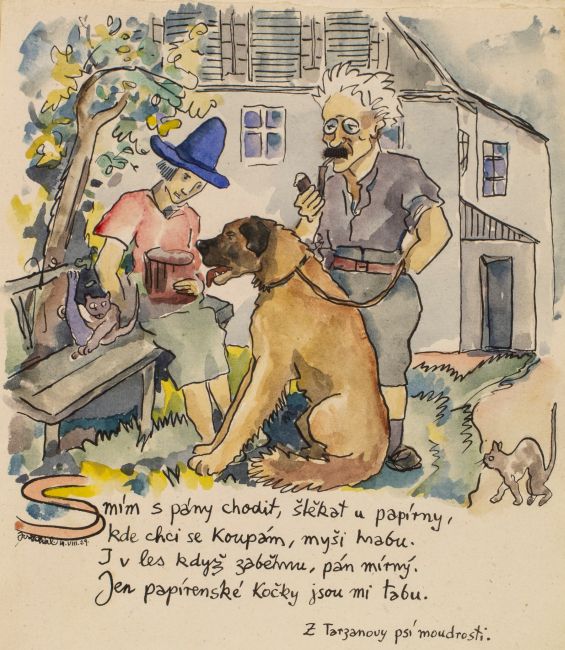 Smím s pány chodit, štěkat u papírny,
kde chci se koupám, myši hrabu.
I v les když zaběhnu, pán mírný.
Jen papírenské kočky jsou mi tabu.
Z Tarzanovy psí moudrosti.